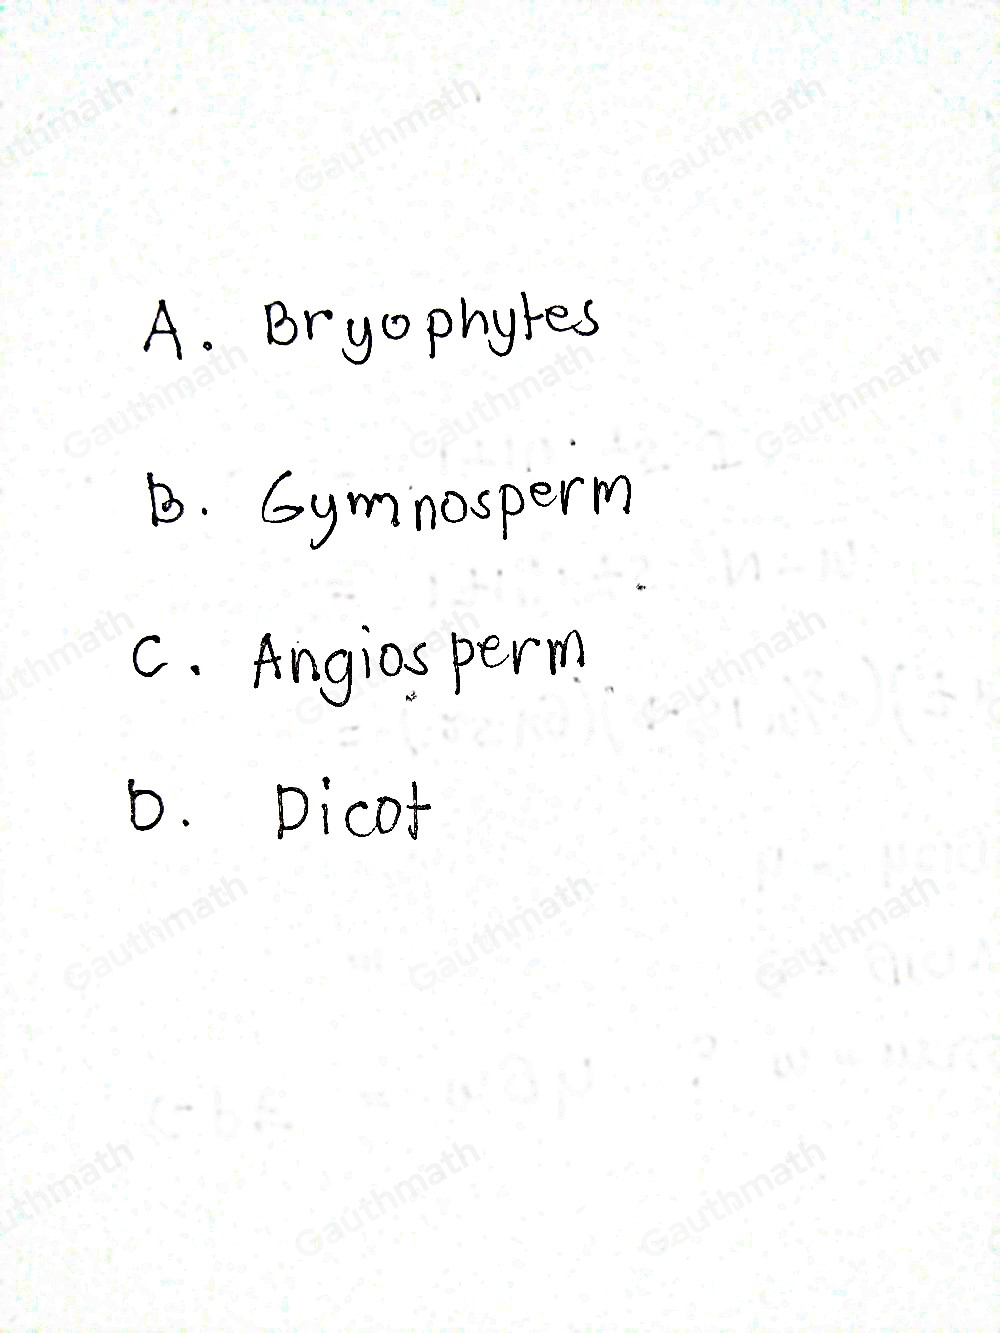 A. Bryophytes
B. Gymnosperm
C. Angiosperm
D. Dicot